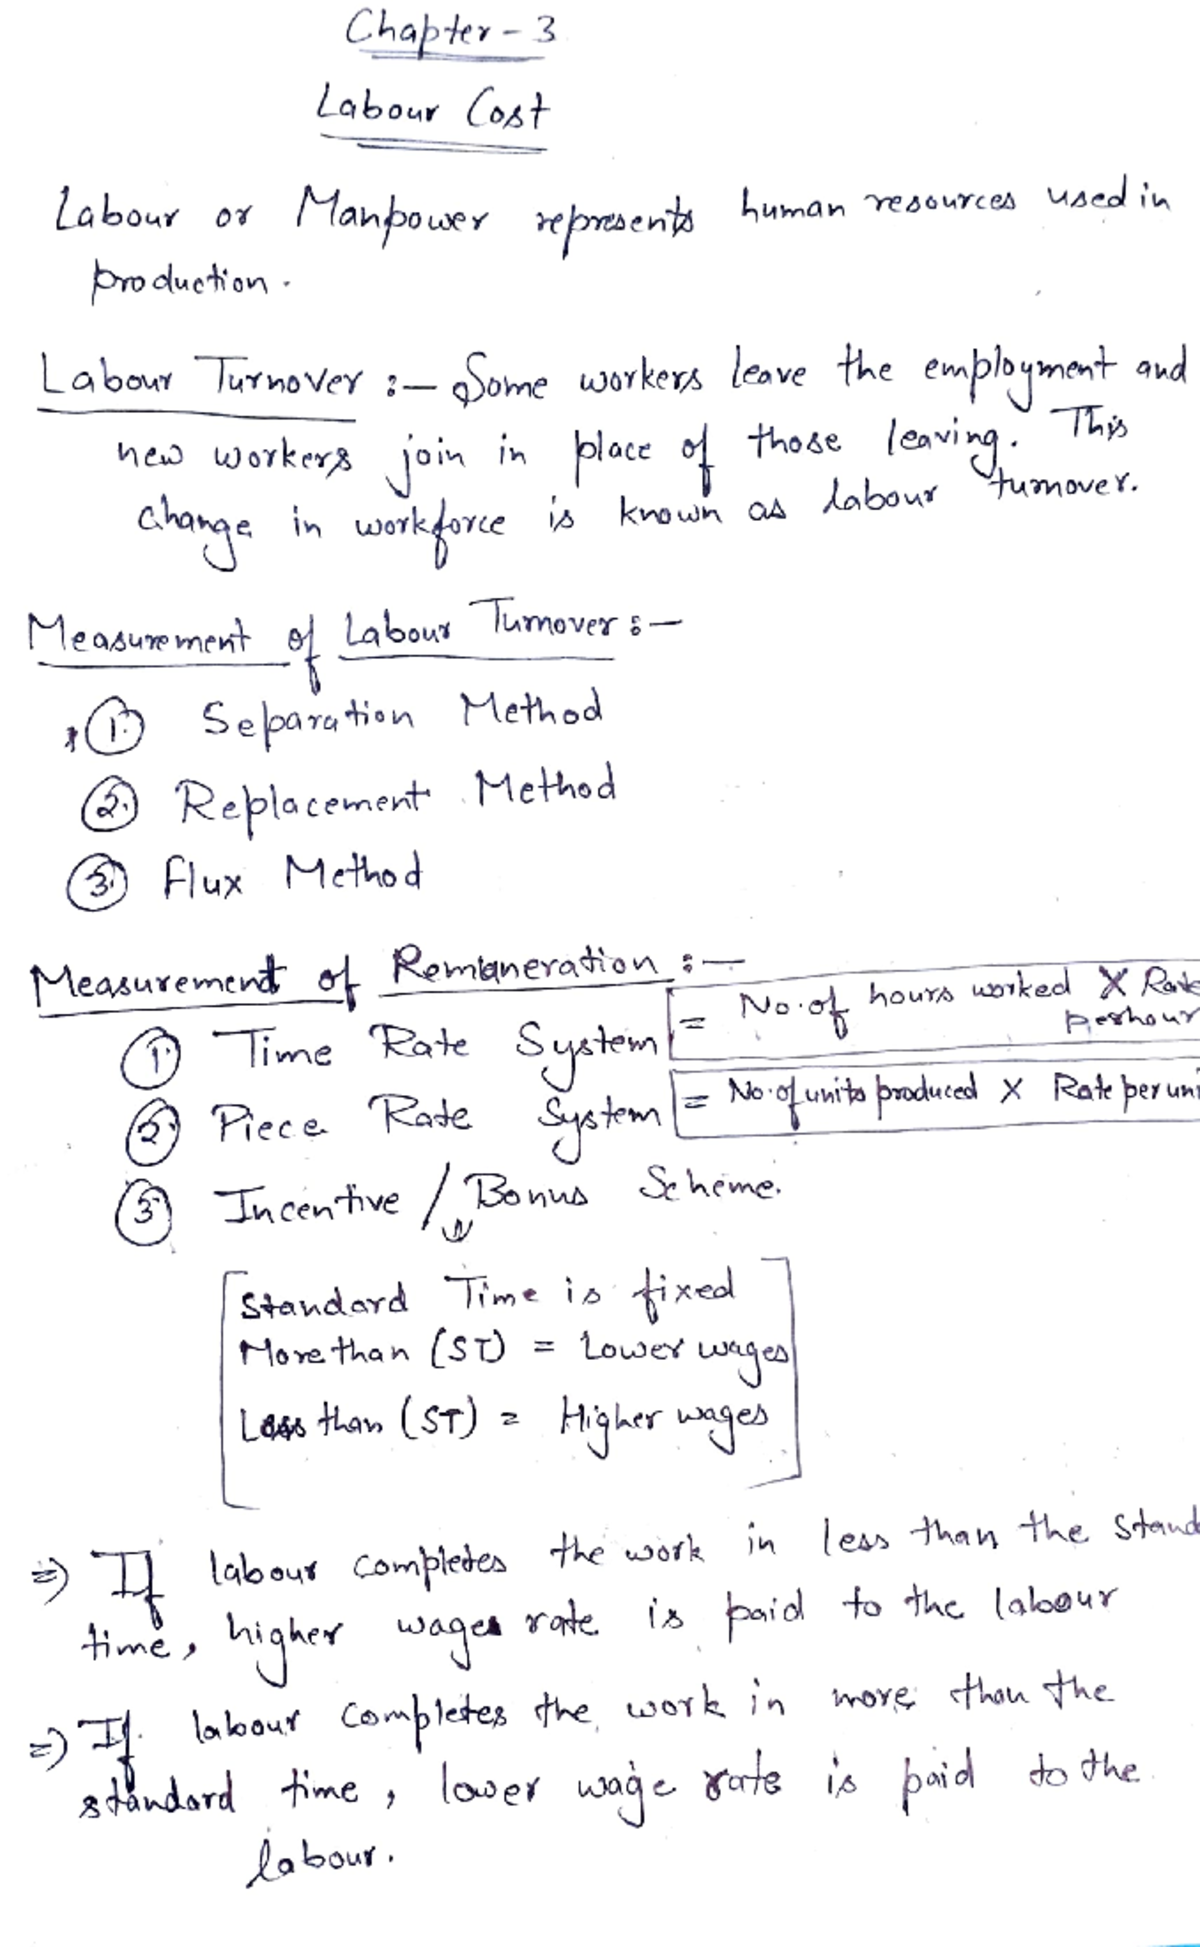 Chapter - 3
Labour Cost
Labour or Manpower represents human resources used in
production.
Labour Turnover :- Some workers leave the employment and
new workers join in place of those leaving. This
change in workforce is known as labour turnover.
Measurement of Labour Turnover :-
1. Separation Method
2. Replacement Method
3. Flux Method
Measurement of Remuneration :-
1. Time Rate System = No. of hours worked X Rate
per hour
2. Piece Rate System = No. of units produced X Rate per uni
3. Incentive / Bonus Scheme.
Standard Time is fixed
More than (ST) = Lower wages
Less than (ST) = Higher wages
=) If labour completes the work in less than the Stand
time, higher wages rate is paid to the labour
=) If labour completes the work in more than the
standard time, lower wage rate is paid to the
labour.